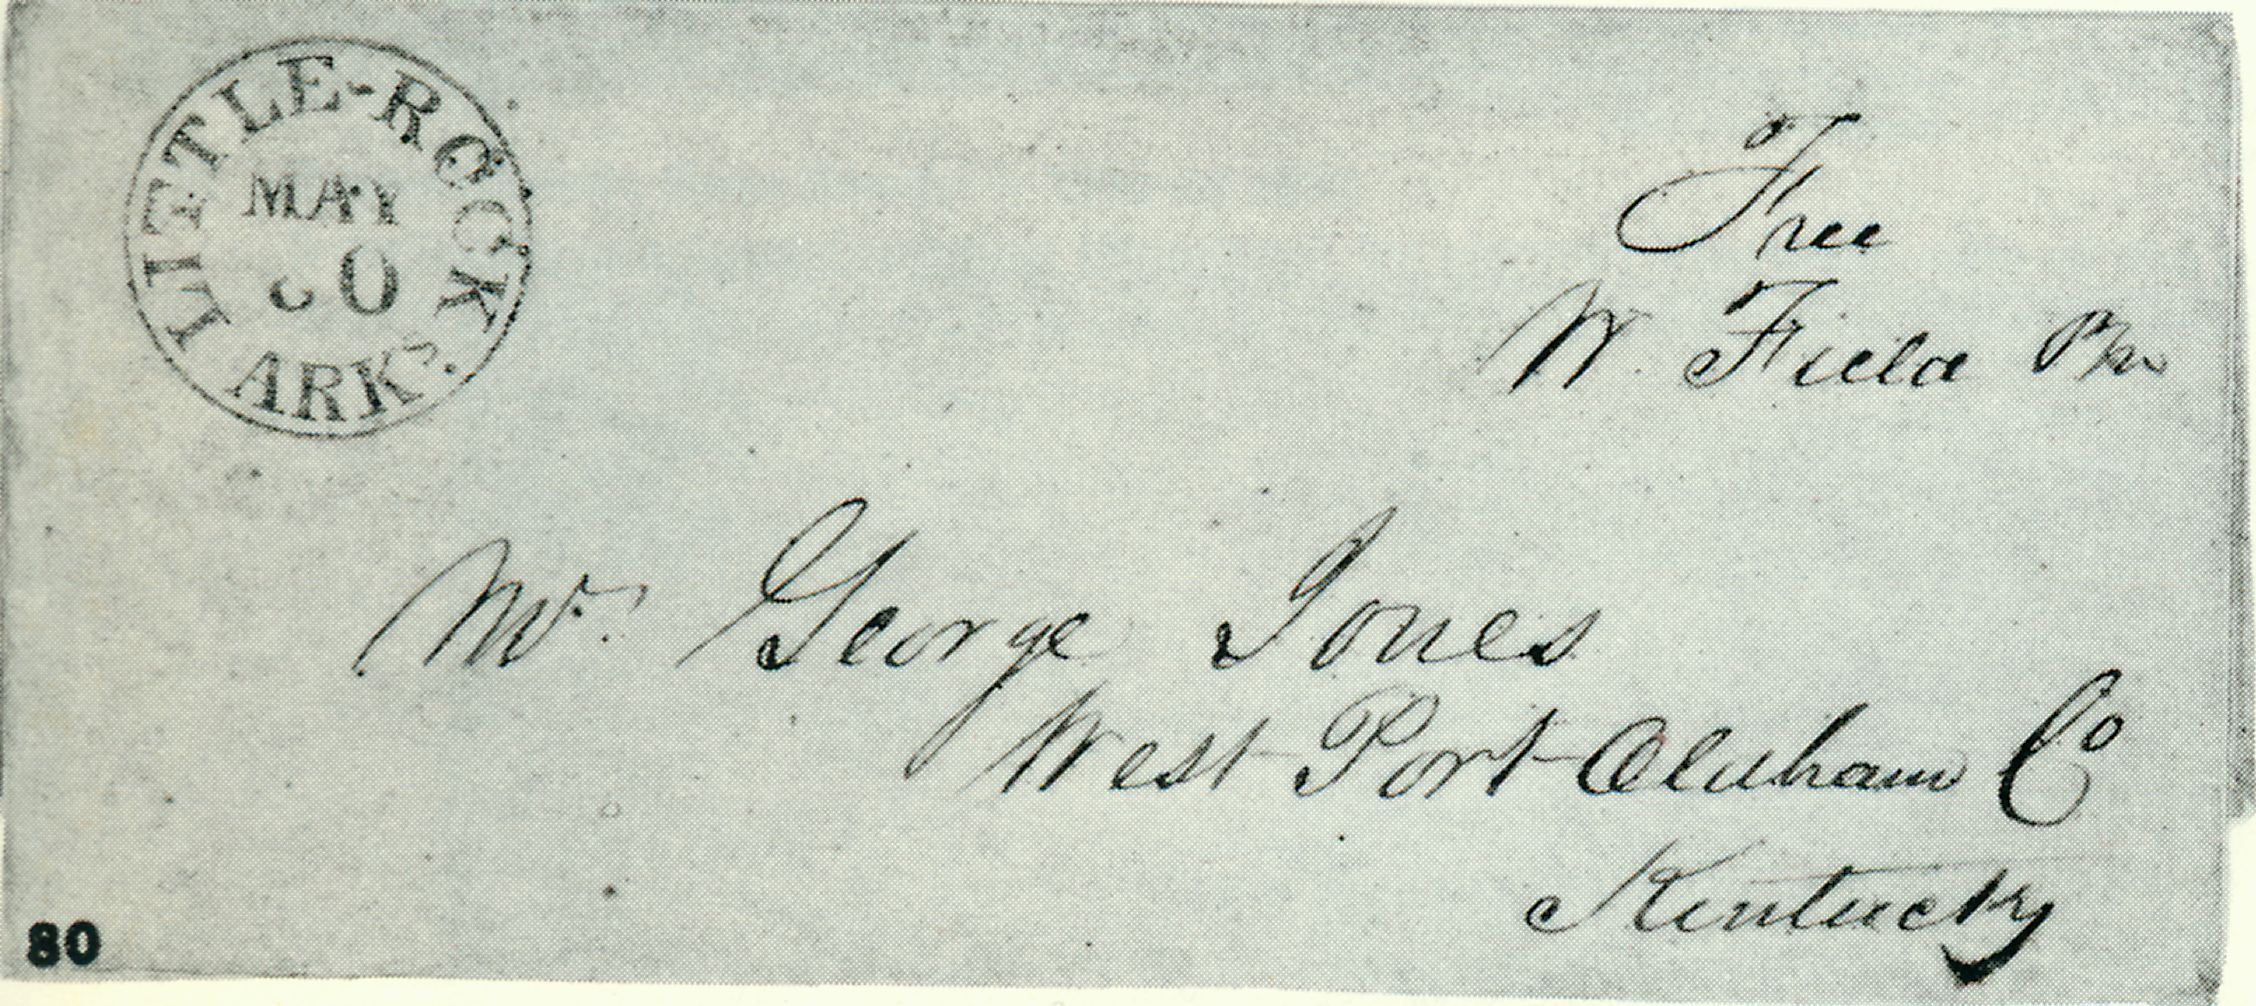 LITTLE-ROCK
MAY
30
ARKS.
Free
W. Field PM
Mr. George Jones
West Port Oldham Co
Kentucky
80